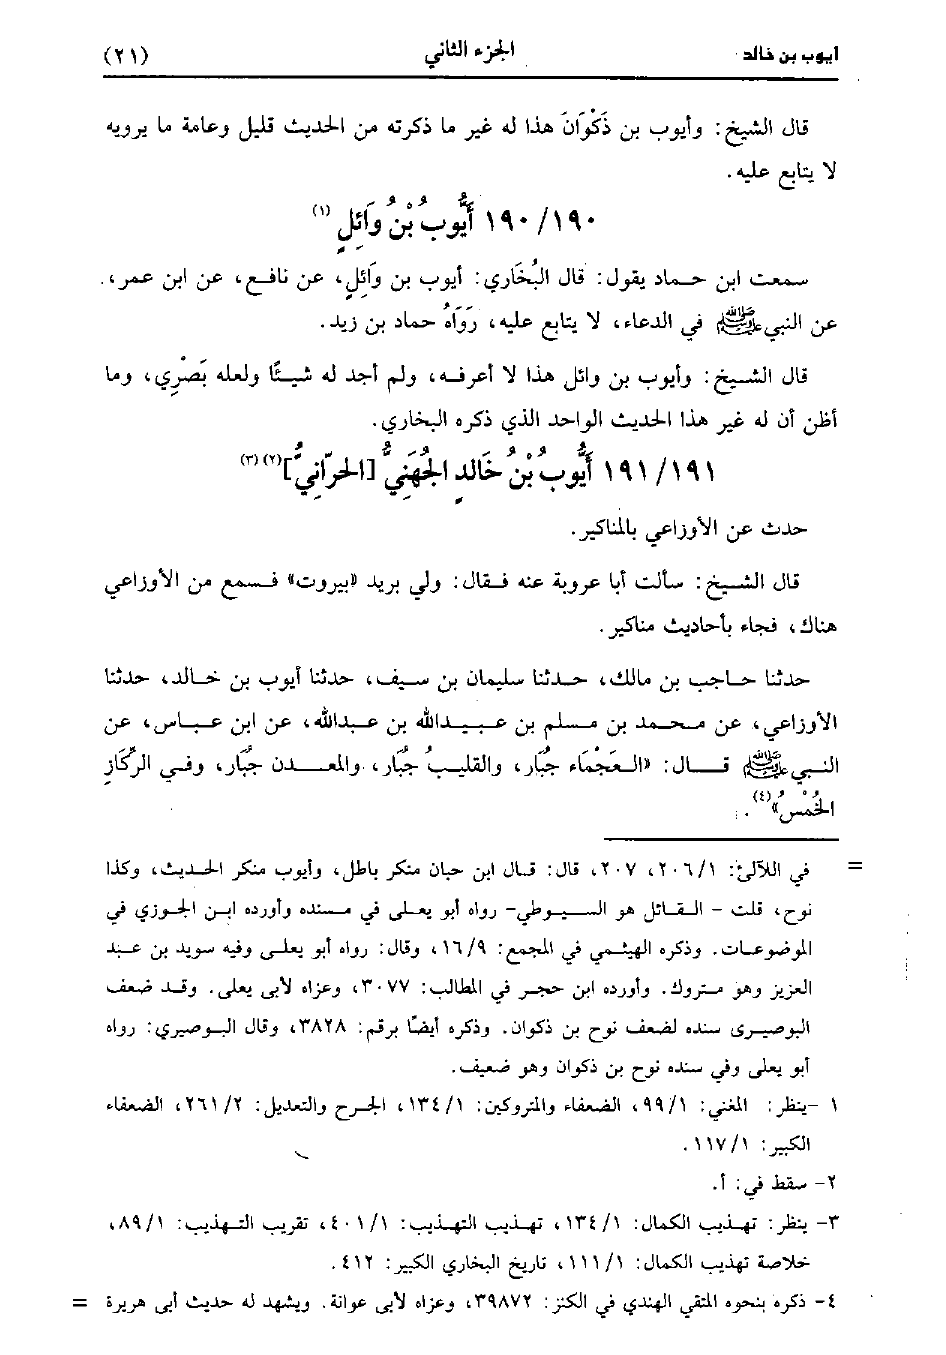 أيوب بن خالد الجزء الثاني (٢١)
قال الشيخ: وأيوب بن ذَكْوَانَ هذا له غير ما ذكرته من الحديث قليل وعامة ما يرويه
لا يتابع عليه.
١٩٠/١٩٠ أَيُّوبُ بْنُ وَائِلٍ (١)
سمعت ابن حماد يقول: قال البُخَاري: أيوب بن وَائِلٍ، عن نافع، عن ابن عمر،
عن النبي ﷺ في الدعاء، لا يتابع عليه، رَوَاهُ حماد بن زيد.
قال الشيخ: وأيوب بن وائل هذا لا أعرفه، ولم أجد له شيئًا ولعله بَصْرِي، وما
أظن أن له غير هذا الحديث الواحد الذي ذكره البخاري.
١٩١/١٩١ أَيُّوبُ بْنُ خَالدٍ الجُهَنِيُّ [الحرّانيُّ] (٢) (٣)
حدث عن الأوزاعي بالمناكير.
قال الشيخ: سألت أبا عروبة عنه فقال: ولي بريد «بيروت» فسمع من الأوزاعي
هناك، فجاء بأحاديث مناكير.
حدثنا حاجب بن مالك، حدثنا سليمان بن سيف، حدثنا أيوب بن خالد، حدثنا
الأوزاعي، عن محمد بن مسلم بن عبيدالله بن عبدالله، عن ابن عباس، عن
النبي ﷺ قال: «العَجْمَاء جُبَار، والقليبُ جُبَار، والمعدن جُبَار، وفي الرِّكَازِ
الخُمْسُ» (٤).
= في اللآلئ: ٢٠٦/١، ٢٠٧، قال: قال ابن حبان منكر باطل، وأيوب منكر الحديث، وكذا
نوح، قلت - القائل هو السيوطي- رواه أبو يعلى في مسنده وأورده ابن الجوزي في
الموضوعات. وذكره الهيثمي في المجمع: ١٦/٩، وقال: رواه أبو يعلى وفيه سويد بن عبد
العزيز وهو متروك. وأورده ابن حجر في المطالب: ٣٠٧٧، وعزاه لأبى يعلى. وقد ضعف
البوصيرى سنده لضعف نوح بن ذكوان. وذكره أيضًا برقم: ٣٨٢٨، وقال البوصيري: رواه
أبو يعلى وفي سنده نوح بن ذكوان وهو ضعيف.
١ -ينظر: المغني: ٩٩/١، الضعفاء والمتروكين: ١٣٤/١، الجرح والتعديل: ٢٦١/٢، الضعفاء
الكبير: ١١٧/١.
٢- سقط في: أ.
٣- ينظر: تهذيب الكمال: ١٣٤/١، تهذيب التهذيب: ٤٠١/١، تقريب التهذيب: ٨٩/١،
خلاصة تهذيب الكمال: ١١١/١، تاريخ البخاري الكبير: ٤١٢.
٤- ذكره بنحوه المتقي الهندي في الكنز: ٣٩٨٧٢، وعزاه لأبى عوانة. ويشهد له حديث أبى هريرة =